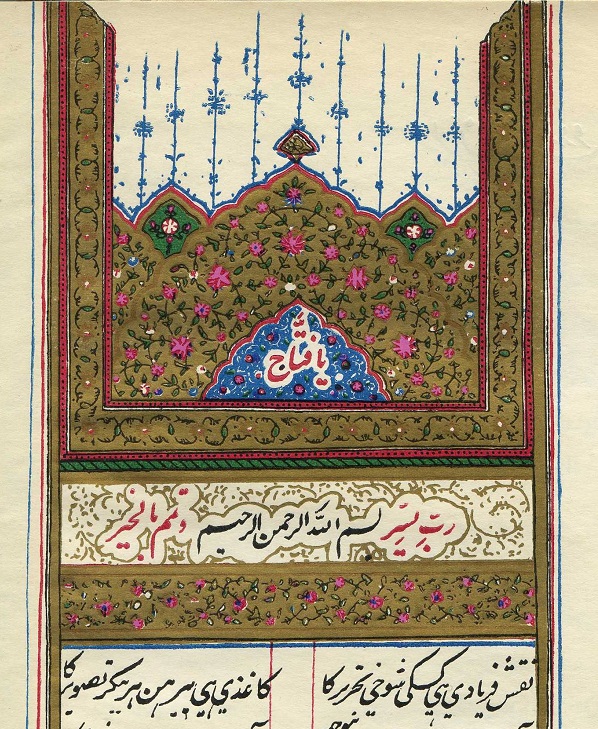 یا فتّاح
ربّ یسّر بسم الله الرحمن الرحیم و تمم بالخیر
نقش فریادی ہی کسکی شوخی تحریر کا کاغذی ہی پیرہن ہر پیکر تصویر کا